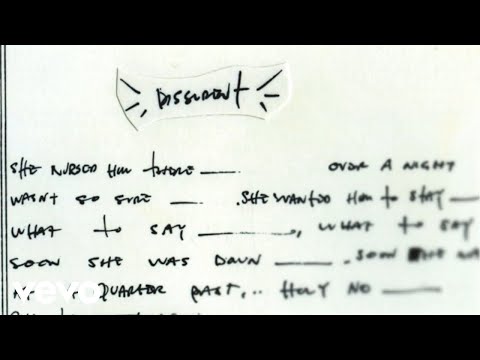 DISSIDENT
SHE NURSED HIM THERE ___ OVER A NIGHT
WASN'T SO SURE ___ . SHE WANTED HIM TO STAY ___
WHAT TO SAY ___, WHAT TO SAY
SOON SHE WAS DOWN ___ . SOON
QUARTER PAST... HOLY NO ___
vevo